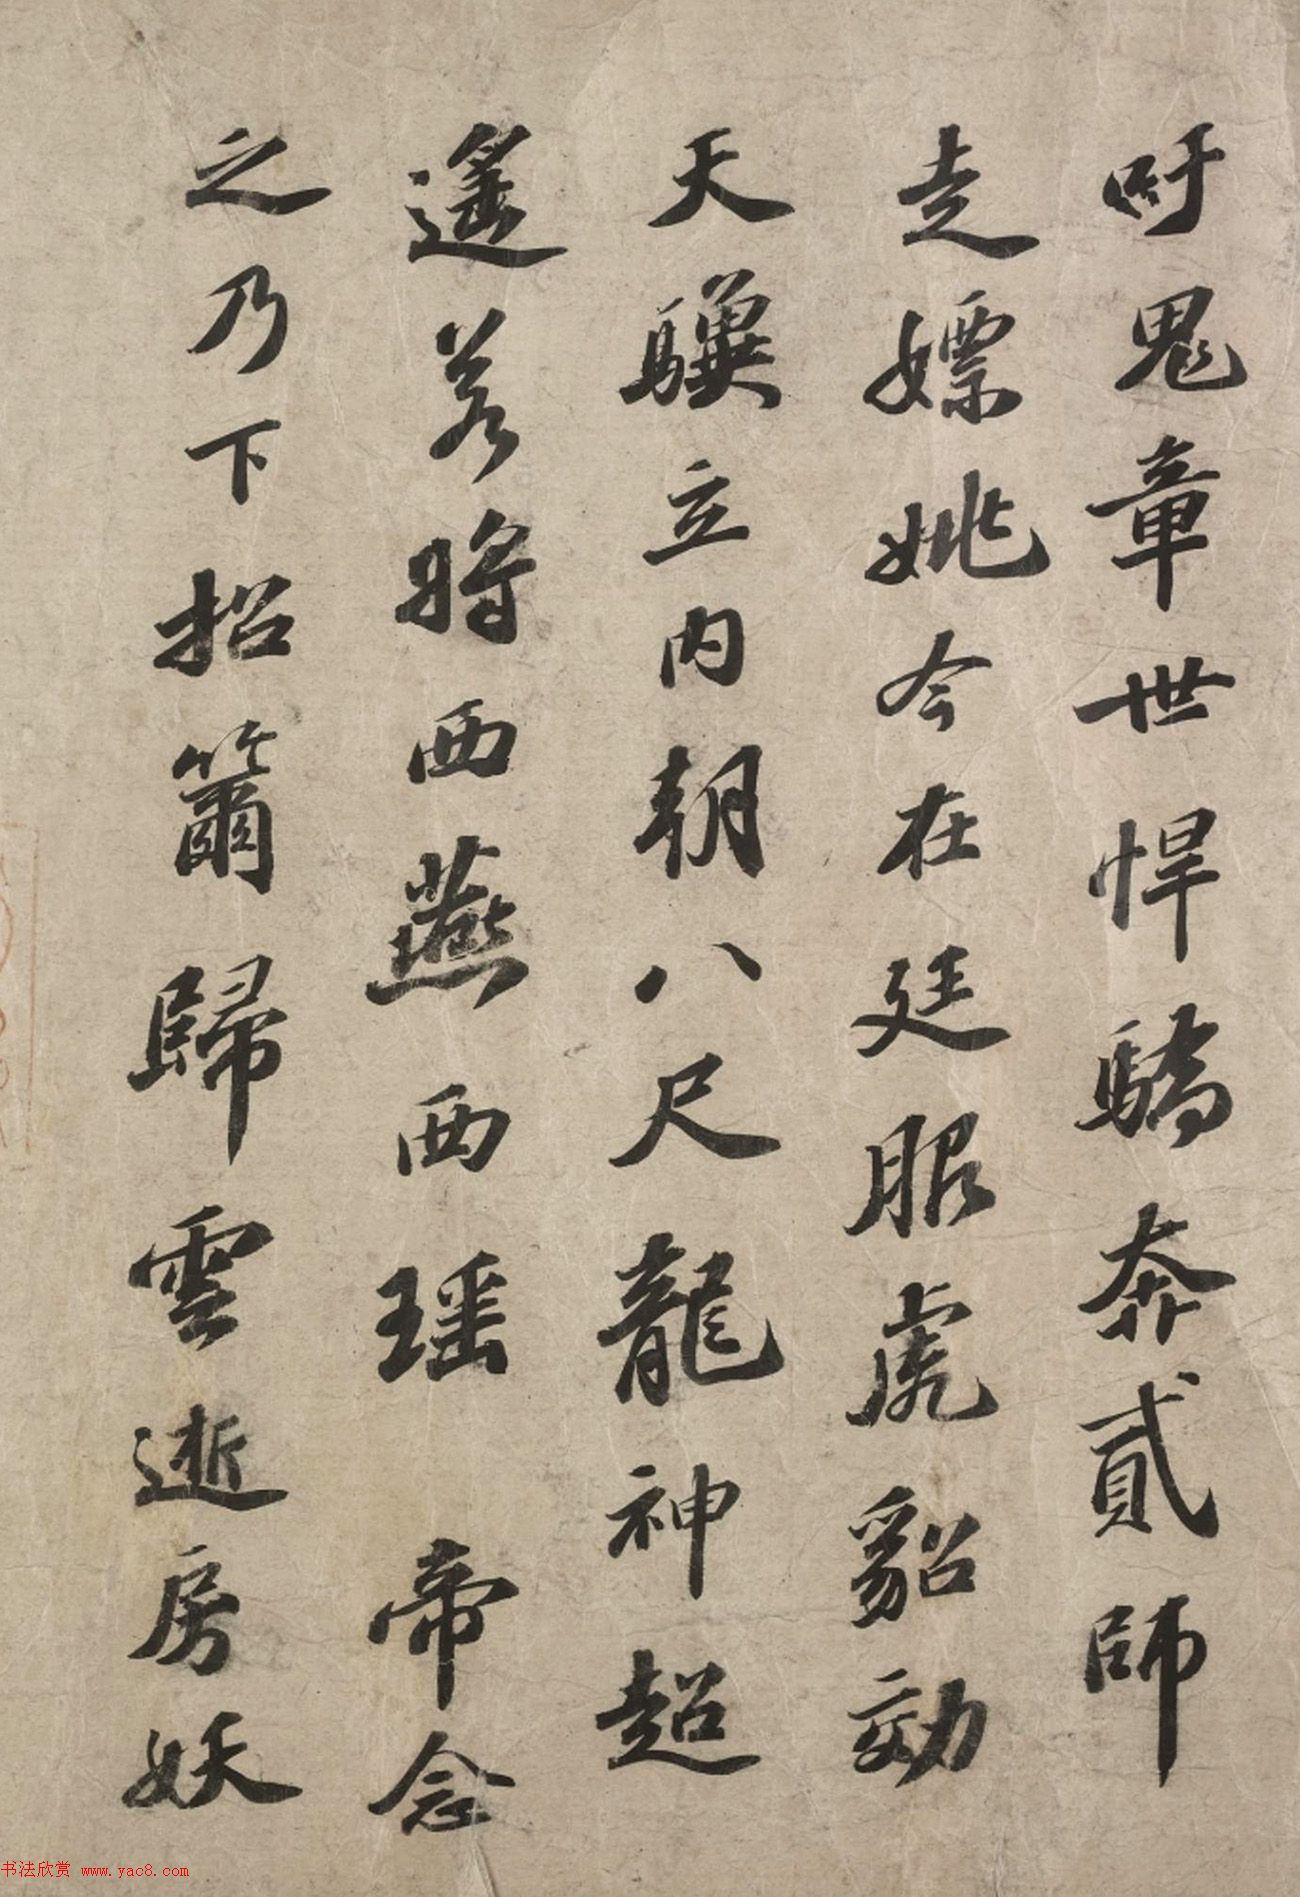 吁鬼章世悍驕奔貳師
走嫖姚今在廷服虎貂効
天驥立内朝八尺龍神超
遙若將西燕西瑶帝念
之乃下招籋歸雲逝房妖
书法欣赏 www.yac8.com